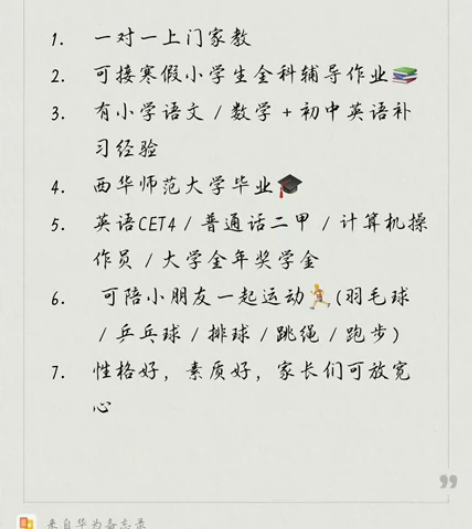 1. 一对一上门家教
2. 可接寒假小学生全科辅导作业📚
3. 有小学语文/数学+初中英语补
习经验
4. 西华师范大学毕业🎓
5. 英语CET4/普通话二甲/计算机操
作员/大学全年奖学金
6. 可陪小朋友一起运动🏃(羽毛球
/乒乓球/排球/跳绳/跑步)
7. 性格好，素质好，家长们可放宽
心
来自华为备忘录